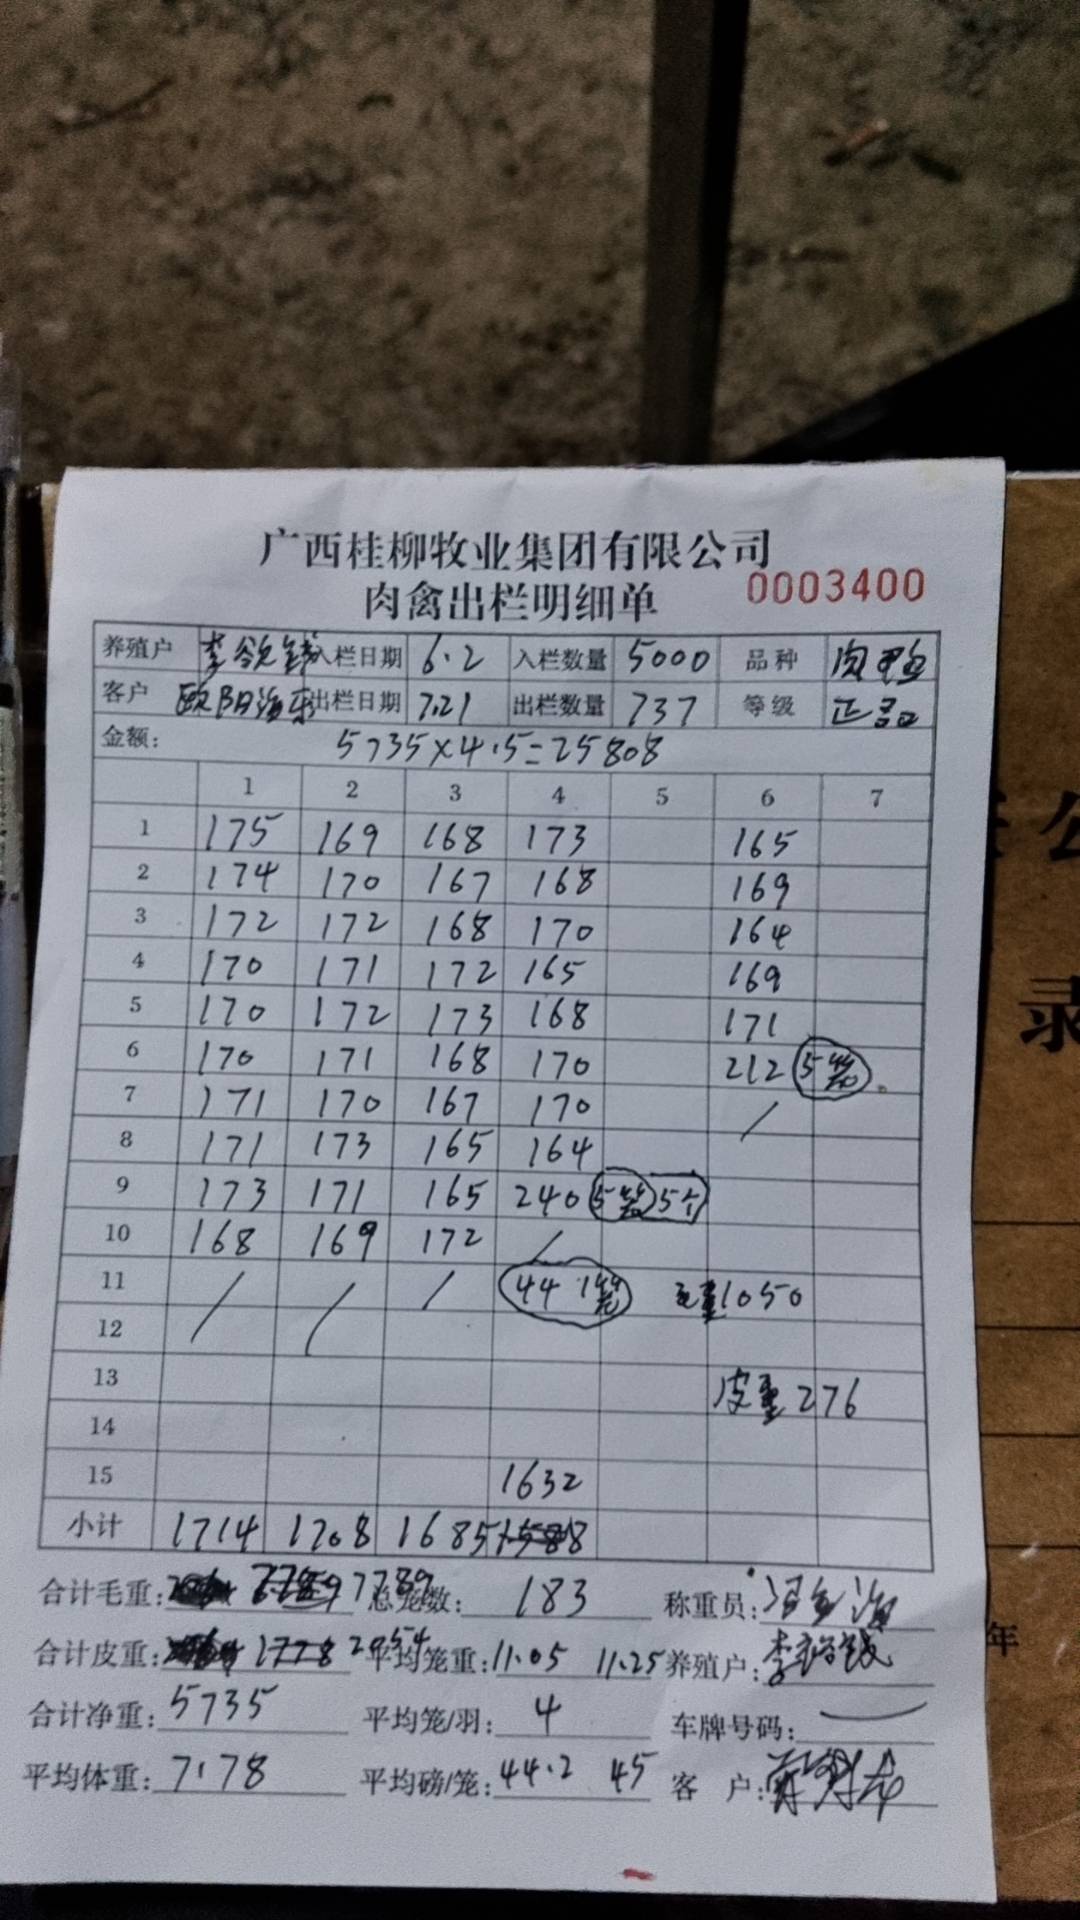 广西桂柳牧业集团有限公司
肉禽出栏明细单 0003400
养殖户 李 入栏日期 6.2 入栏数量 5000 品种 肉鸭
客户 欧阳海东 出栏日期 7.21 出栏数量 737 等级 正品
金额: 5735×4.5=25808
1 2 3 4 5 6 7
1 175 169 168 173 165
2 174 170 167 168 169
3 172 172 168 170 164
4 170 171 172 165 169
5 170 172 173 168 171
6 170 171 168 170 212 5笼
7 171 170 167 170 /
8 171 173 165 164
9 173 171 165 240 5笼 5个
10 168 169 172 /
11 / / / 44 1笼 毛重1050
12
13 皮重276
14
15 1632
小计 1714 1708 1685
合计毛重: 7789 总笼数: 183 称重员:
合计皮重: 1778 2054 平均笼重: 11.05 11.25 养殖户: 李
合计净重: 5735 平均笼/羽: 4 车牌号码:
平均体重: 7.78 平均磅/笼: 44.2 45 客 户:
公
录
年